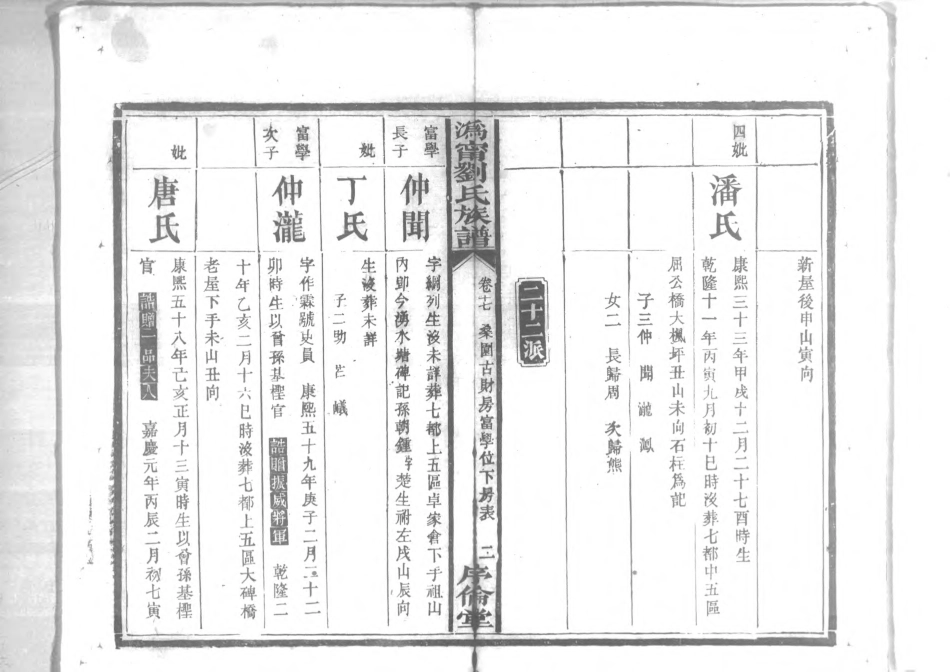 新屋後申山寅向
四妣
潘氏
康熙三十三年甲戌十二月二十七酉時生
乾隆十一年丙寅九月初十巳時沒葬七都中五區
屈公橋大楓坪丑山未向石柱爲記
子三仲聞 瀧
女二 長歸周 次歸熊
二十二派
潙甯劉氏族譜
卷十七 桑園古財房富學位下房表 二
序倫堂
富學
長子
仲聞
字綱列生沒未詳葬七都上五區卓家倉下手祖山
內卽今湧水塘碑記孫朝鍾字楚生祔左戌山辰向
妣
丁氏
生沒葬未詳
子二助 蟻
富學
次子
仲瀧
字作霖號吏員 康熙五十九年庚子二月二十二
卯時生以曾孫基樫官 誥贈振威將軍 乾隆二
十年乙亥二月十六巳時沒葬七都上五區大碑橋
老屋下手未山丑向
妣
唐氏
康熙五十八年己亥正月十三寅時生以曾孫基樫
官 誥贈一品夫人 嘉慶元年丙辰二月初七寅